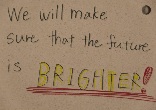 We will make
sure that the future
is BRIGHTER!